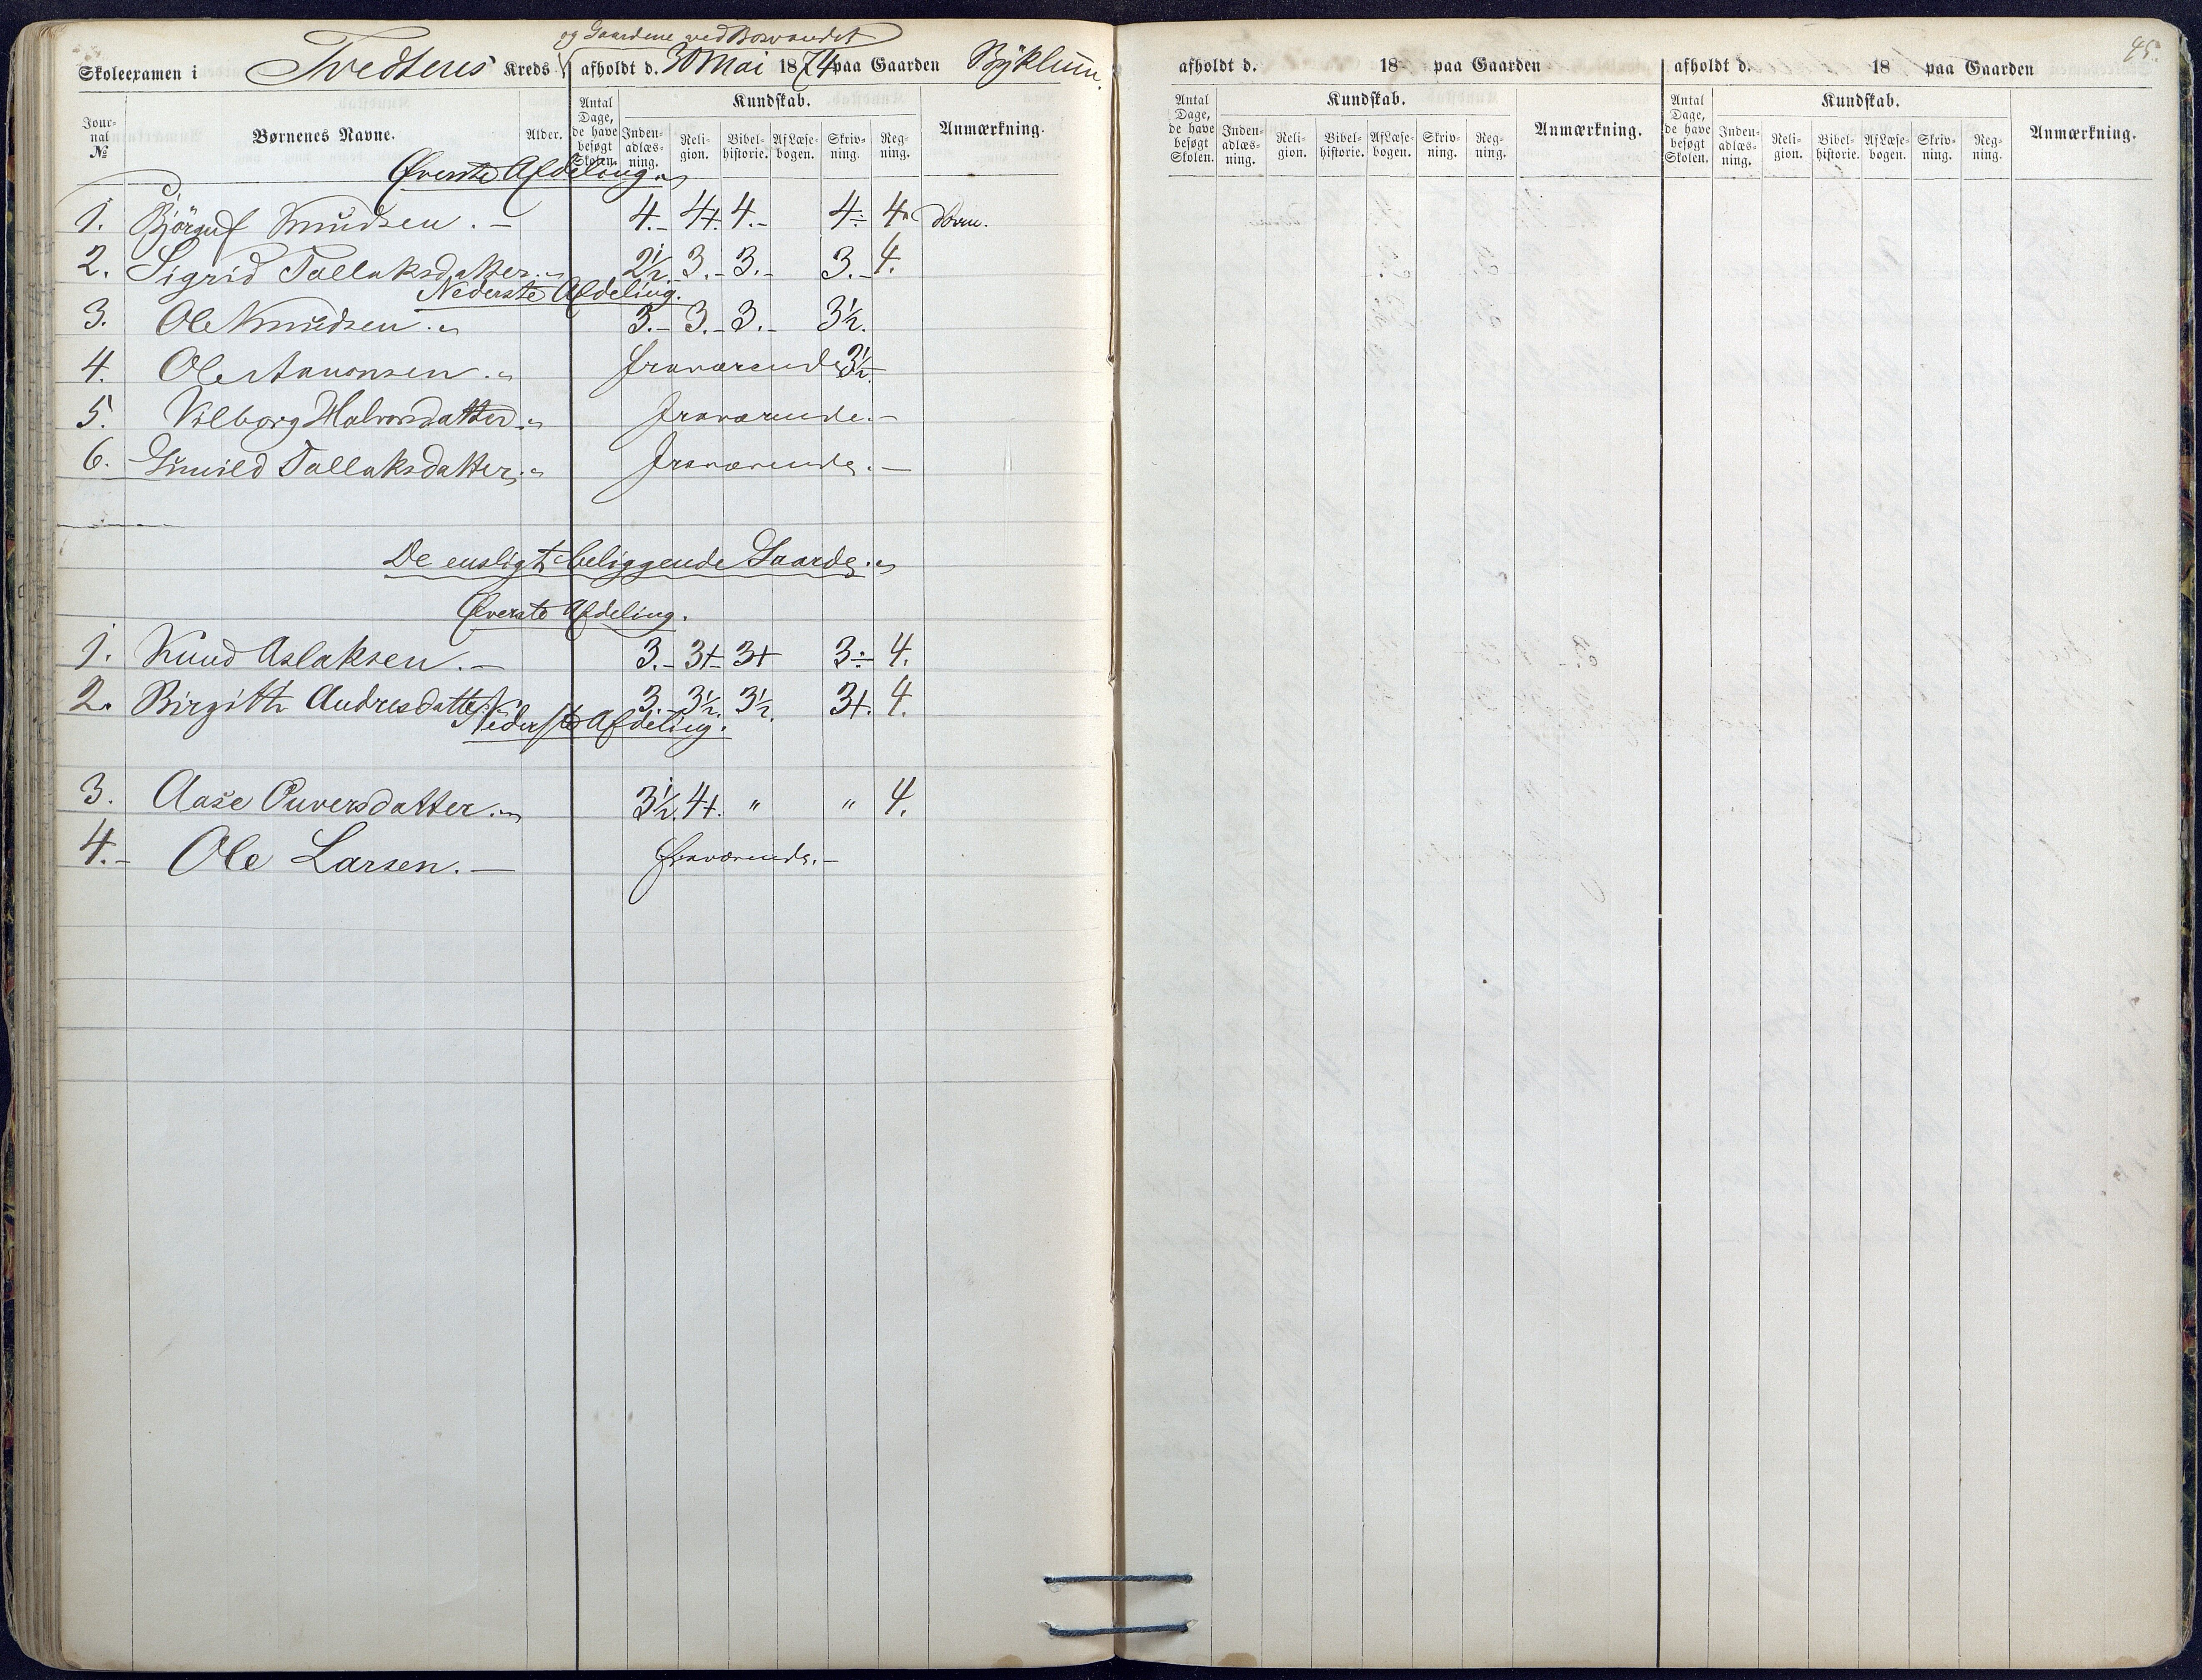 og Gaardene ved Bosvandet
Skoleexamen i Tvedtens Kreds afholdt d. 30 Mai 1874 paa Gaarden Bÿklum.
Journal № Børnenes Navne. Alder. Antal Dage, de have besøgt Skolen. Kundskab. Indenadlæsning. Religion. Bibelhistorie. Af Læsebogen. Skrivning. Regning. Anmærkning.
Øverste Afdeling.
1. Björguf Knudsen. – 4.– 4+. 4.– 4÷ 4
2. Sigrid Tallaksdatter. 2½. 3.– 3.– 3.– 4.
Nederste Afdeling.
3. Ole Knudsen. 3.– 3.– 3.– 3½.
4. Ole Aanonsen. fraværende 3½.
5. Vilborg Halvorsdatter. fraværende.–
6. Gunild Tallaksdatter. fraværende.–
De ensligt beliggende Gaarde.
Øverste Afdeling.
1. Knud Aslaksen.– 3.– 3+ 3+ 3÷ 4.
2. Birgitte Andresdatter. 3.– 3½. 3½. 3+. 4.
Nederste Afdeling.
3. Aase Ouversdatter. 3½. 4+. " " 4.
4.– Ole Larsen.– fraværende.–
45.
afholdt d. 18 paa Gaarden
Antal Dage, de have besøgt Skolen. Kundskab. Indenadlæsning. Religion. Bibelhistorie. Af Læsebogen. Skrivning. Regning. Anmærkning.
afholdt d. 18 paa Gaarden
Antal Dage, de have besøgt Skolen. Kundskab. Indenadlæsning. Religion. Bibelhistorie. Af Læsebogen. Skrivning. Regning. Anmærkning.